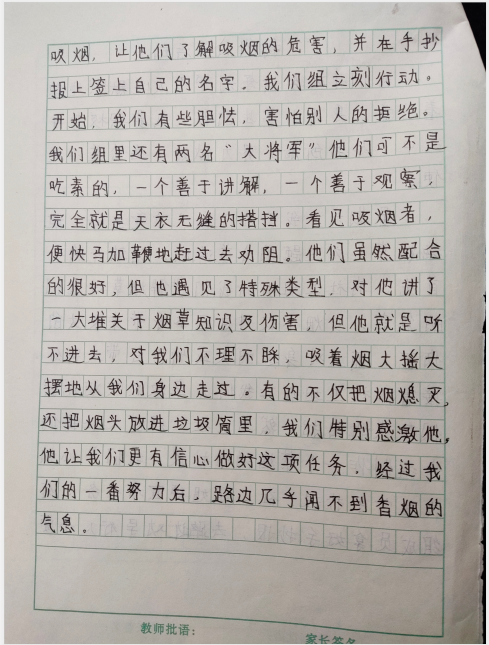 吸烟，让他们了解吸烟的危害，并在手抄
报上签上自己的名字。我们组立刻行动。
开始，我们有些胆怯，害怕别人的拒绝。
我们组里还有两名“大将军”他们可不是
吃素的，一个善于讲解，一个善于观察，
完全就是天衣无缝的搭挡。看见吸烟者，
便快马加鞭地赶过去劝阻。他们虽然配合
的很好，但也遇见了特殊类型，对他讲了
一大堆关于烟草知识及伤害，但他就是听
不进去，对我们不理不睬，吸着烟大摇大
摆地从我们身边走过。有的不仅把烟熄灭，
还把烟头放进垃圾筒里，我们特别感激他，
他让我们更有信心做好这项任务，经过我
们的一番努力后，路边几乎闻不到香烟的
气息。
教师批语：
家长签名